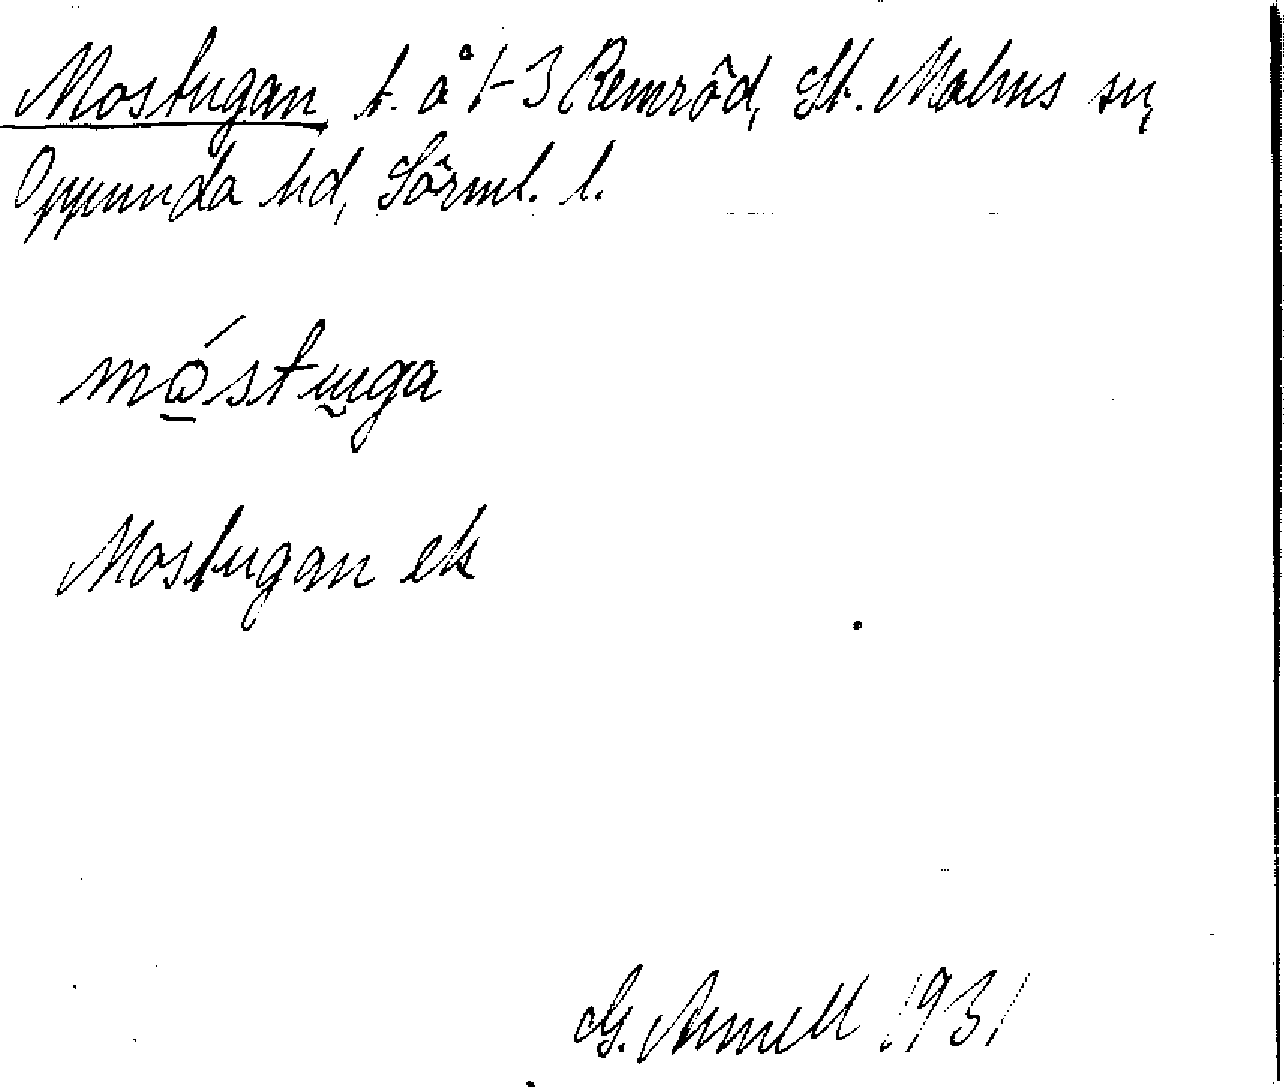 Mostugan, t. å 1-3 Remröd, St. Malms sn,
Oppunda hd, Sörml. l.
mós̱tu̮ga
Mostugan ek
G. Arnell 1931